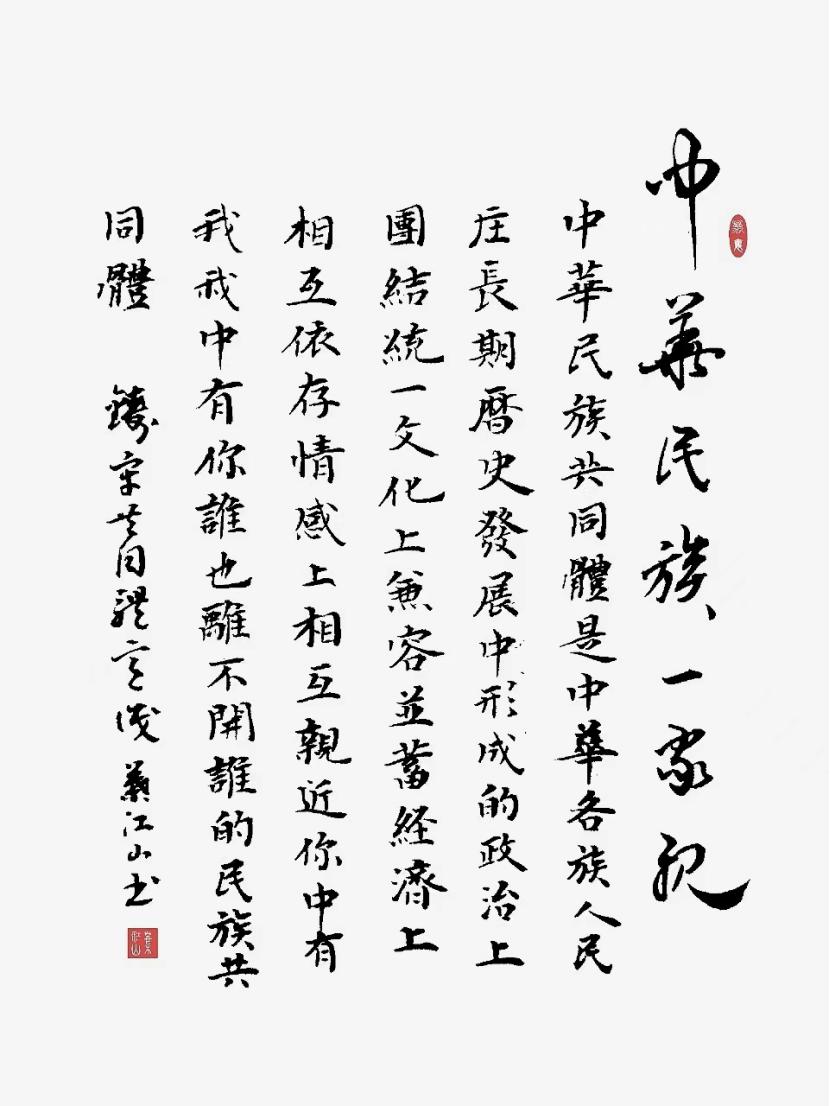 中華民族一家親
中華民族共同體是中華各族人民
在長期曆史發展中形成的政治上
團結統一文化上兼容並蓄経濟上
相互依存情感上相互親近你中有
我我中有你誰也離不開誰的民族共
同體 鑄牢共同體意識 江山书